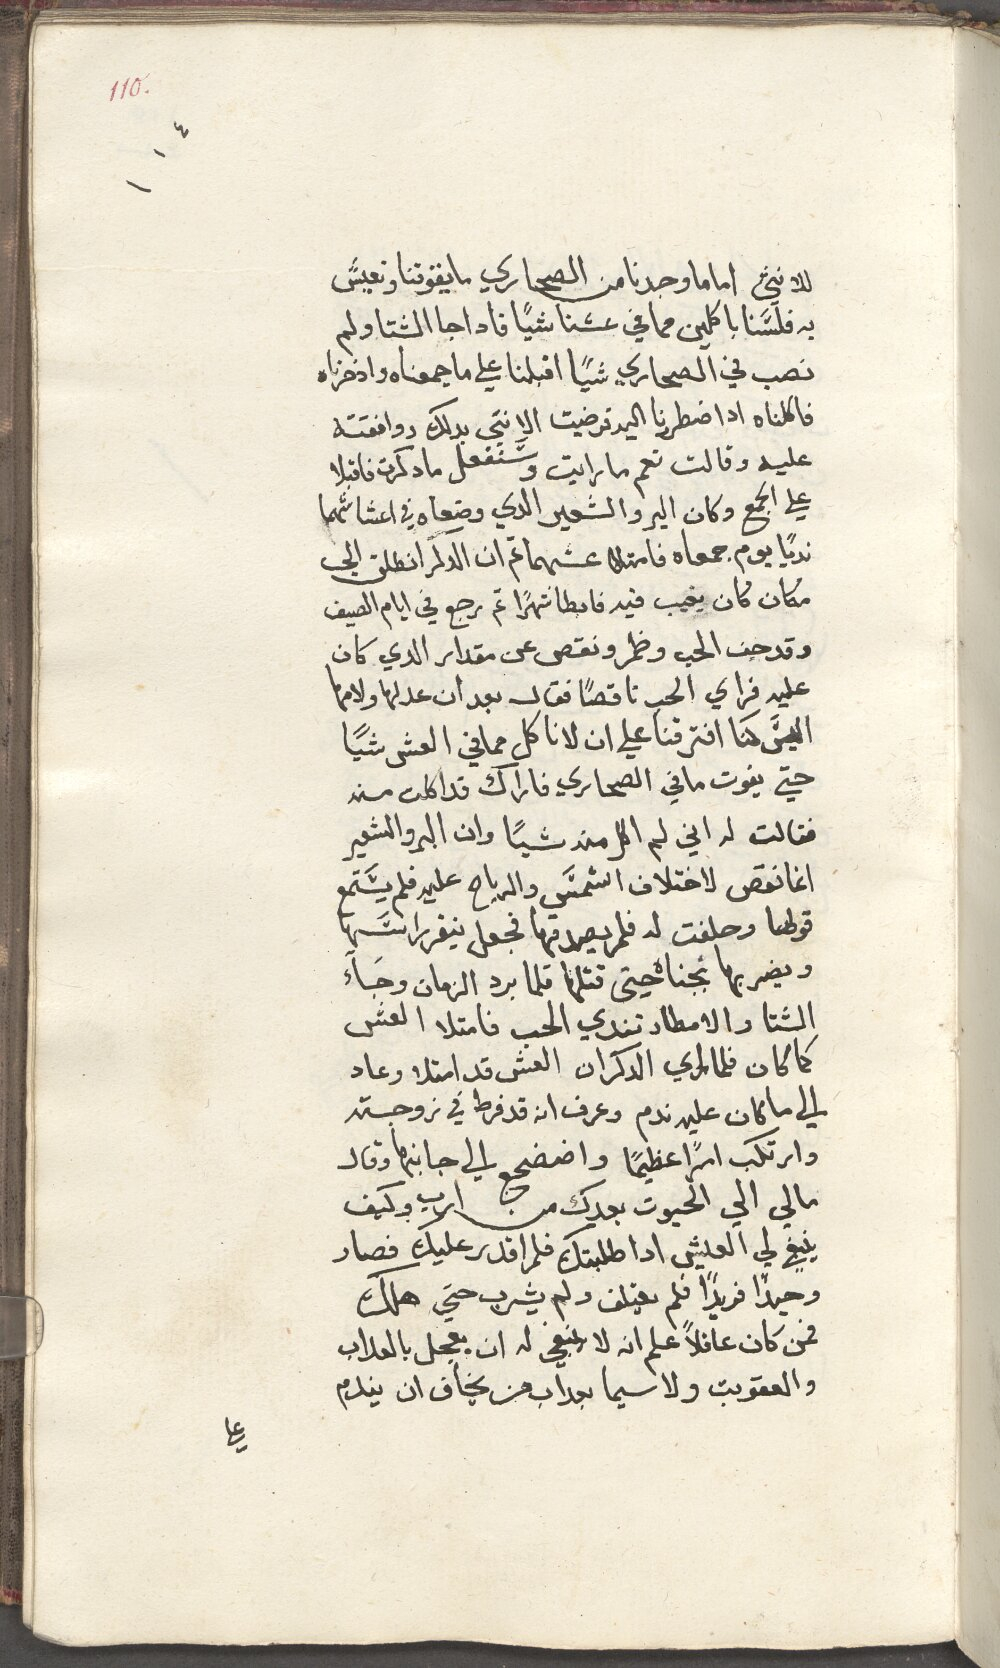 110.
١١٤
للانثي اما ما وجدنا من الصحاري ما يقوتنا ونعيش
به فلسنا باكلين مما في عشنا شيًا فاداجا الشتا ولم
نصب في الصحاري شيًا اقبلنا علي ما جمعناه واذخرناه
فاكلناه ادا اضطرينا اليه فرضيت الانتي بدلك ووافقته
عليه وقالت نعم ما رايت وسنفعل ما دكرت فاقبلا
علي الجمع وكان البر والشعير الدي وضعاه في اعشاشهما
نديًا يوم جمعاه فامتلا عشهما تم ان الدكر انطلق الي
مكان كان يغيب فيه فابطا شهرًا تم رجع في ايام الصيف
وقد جف الحب وضمر ونقص عن مقدار الدي كان
عليه فراي الحب ناقصًا فقال بعد ان عدلها ولامها
اليس كنا افترقنا علي ان لا ناكل مما في العش شيًا
حتي يفوت ما في الصحاري فاراك قد اكلت منه
فقالت له اني لم اكل منه شيًا وان البر والشعير
انما نقص لاختلاف الشمس والرياح عليه فلم يستمع
قولها وحلفت له فلم يصدقها فجعل ينقر راسها
ويضربها بجناه حتى قتلها فلما برد الزمان وجآء
الشتا والامطار تندي الحب فامتلا العش
كما كان فلما راي الدكر ان العش قد امتلا وعاد
الي ما كان عليه ندم وعرف انه قد فرط في زوجته
وارتكب امرًا عظيمًا واضضجع الي جانبها وقال
مالي الي الحيوت بعدك من ارب وكيف
ينبغي لي العيش ادا طلبتك فلم اقدر عليك فصار
وحيدًا فريدًا فلم يعتلف ولم يشرب حتي هلك
فمن كان عاقلاً علم انه لا ينبغي له ان يعجل بالعداب
والعقوبت ولا سيما بعداب من يخاف ان يندم